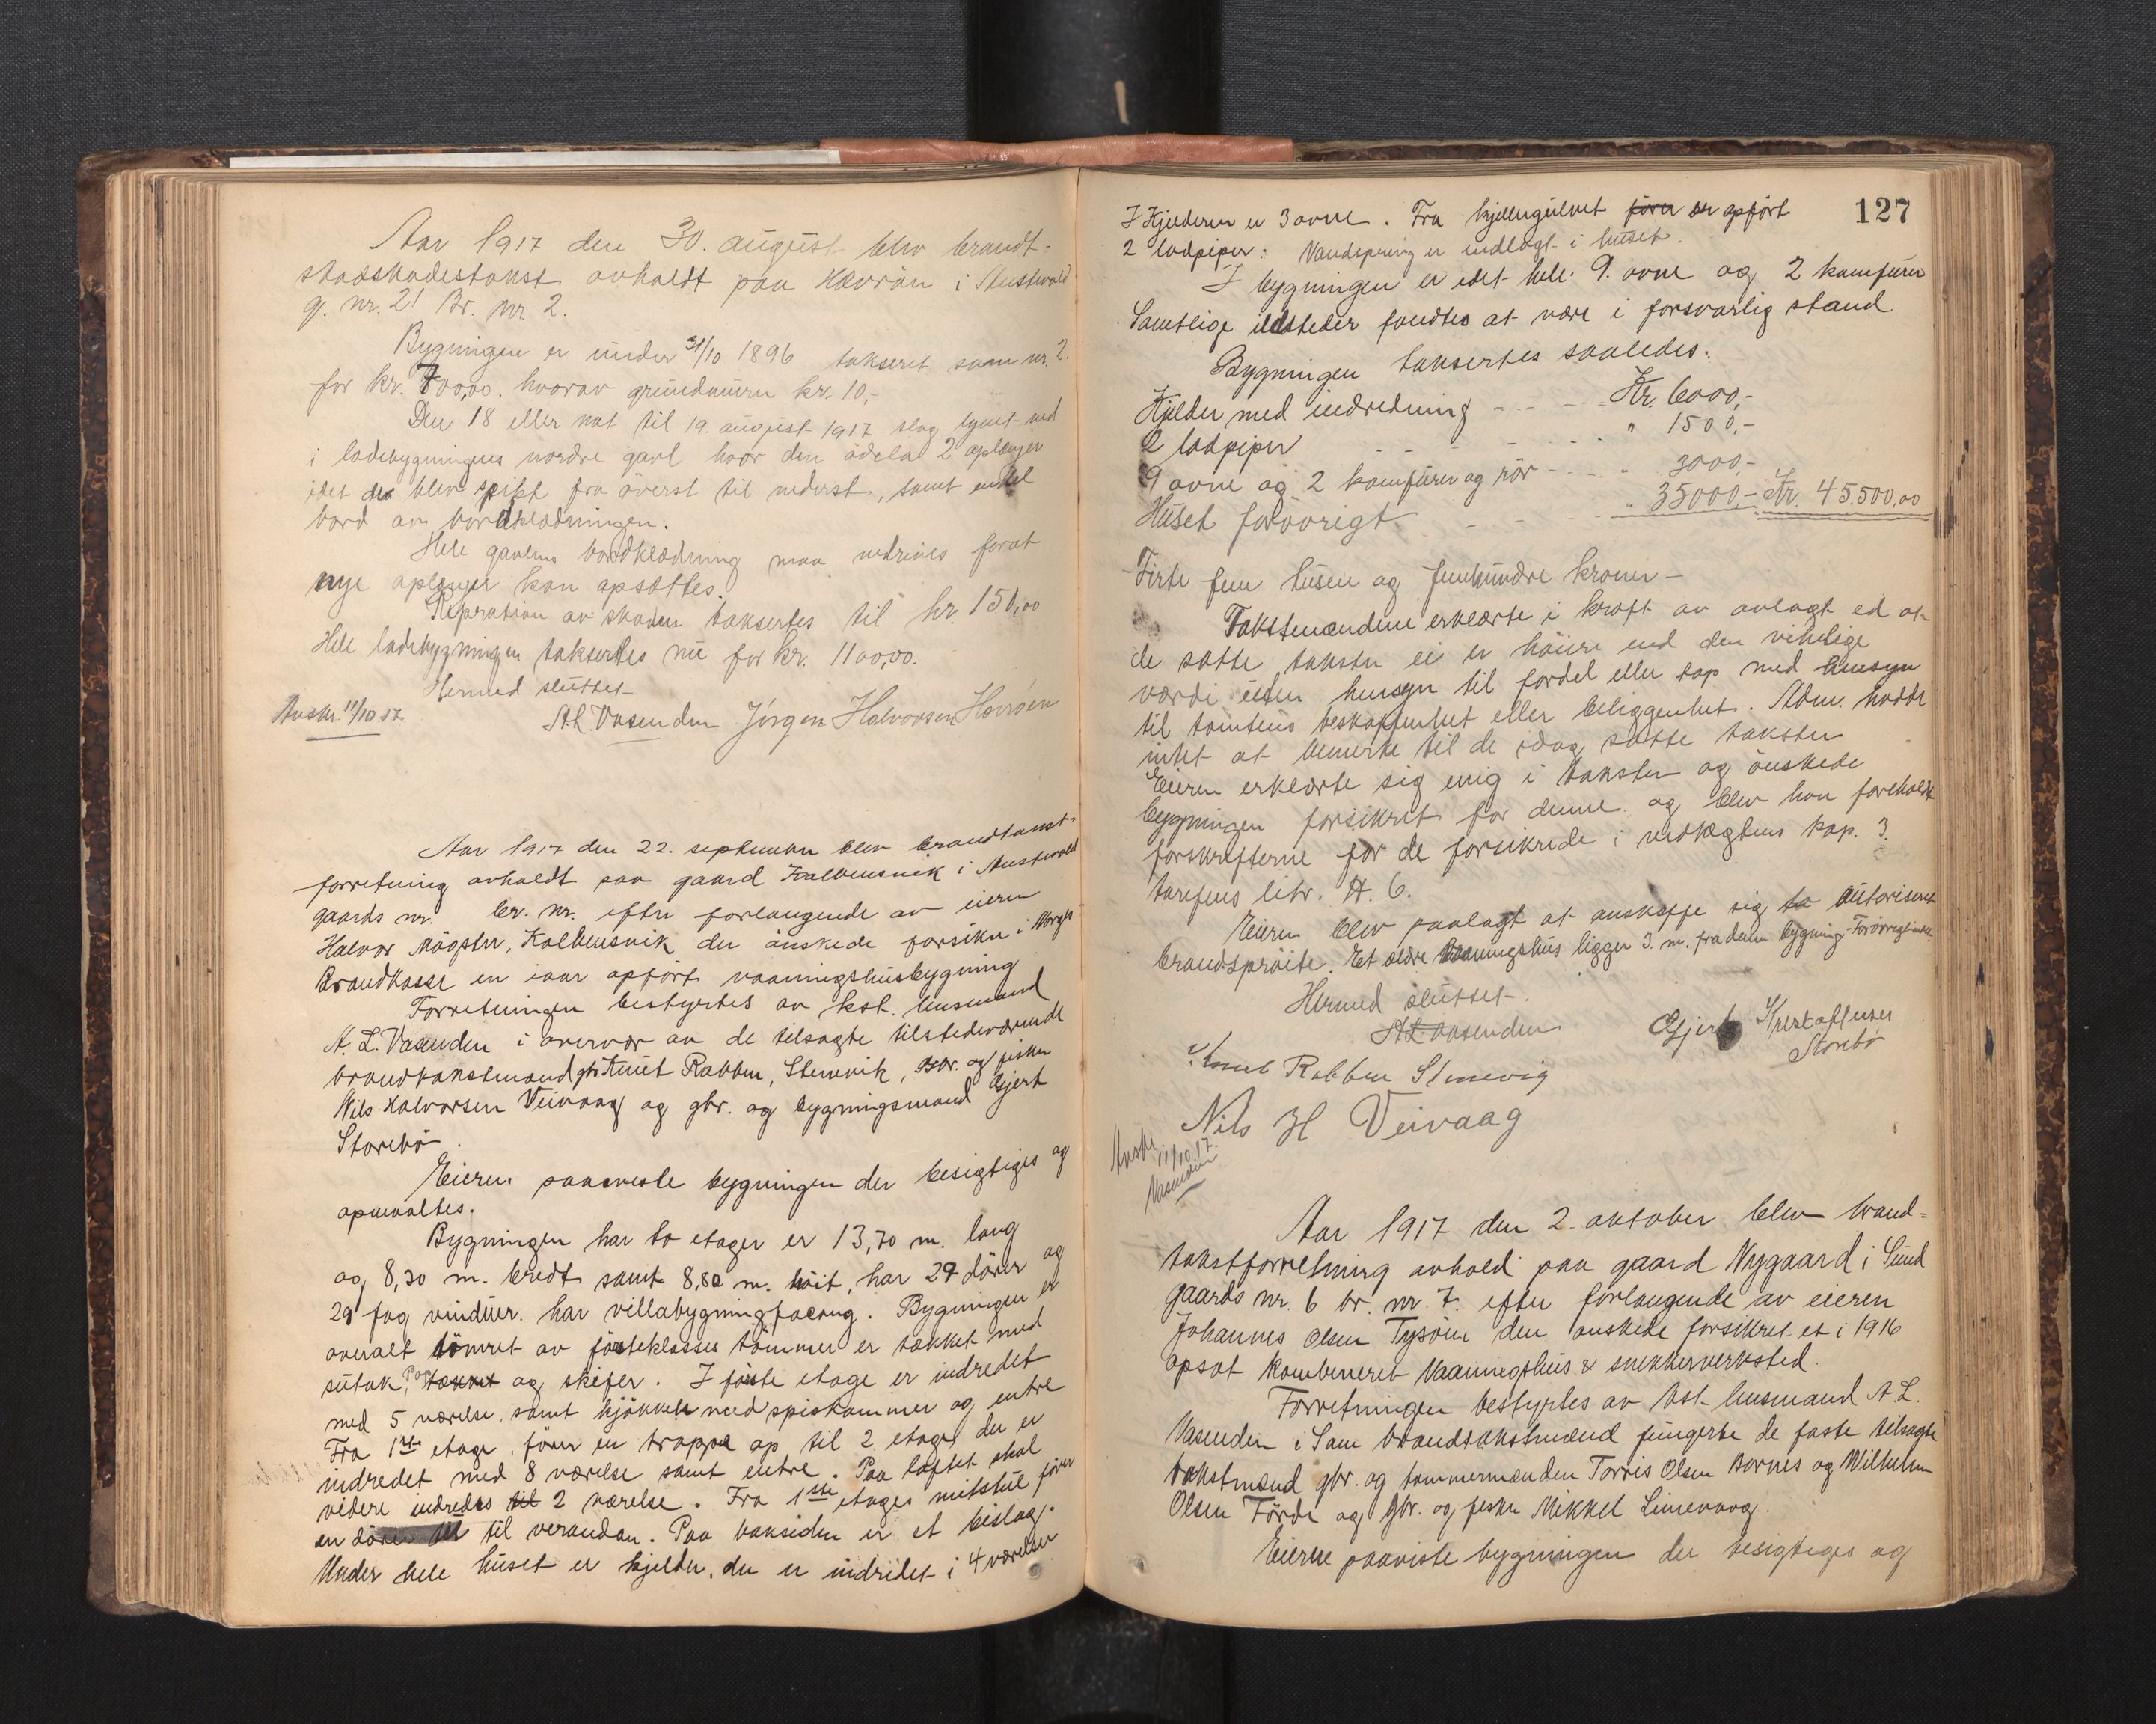 Aar 1917 den 30. august blev brandt-
skadeskadestakst avholdt paa Hævrøn i Austvold
g. nr. 21 Br. nr 2.
Bygningen er under 31/10 1896 takseret som nr. 2.
for kr. 700,00. hvorav grundmuren kr. 10,-
Den 18 eller nat til 19. august 1917 slog lynet ned
i ladebygningens nordre gavl hvor den ødela 2 oplenger
idet de blev splist fra øverst til nederst, samt endel
bord av bordklædningen.
Hele gavlens bordklædning maa nedrives forat
nye oplenger kan opsættes.
Repration av skaden taksertes til kr. 150,00
Hele ladebygningen taksertes nu for kr. 1100,00.
Hermed sluttet
Avskr. 11/10.17. A.L. Vasenden Jørgen Halvorsen Hævrøen
Aar 1917 den 22. september blev brandtakst-
forretning avholdt paa gaard Kalbensvik i Austvold
gaards nr. br. nr. efter forlangende av eieren
Halvor Møgster, Kolbensvik der ønskede forsikre i Norges
Brandkasse en iaar opført vaaningshusbygning
Forretningen bestyrtes av kst. lensmand
A. L. Vasenden i overvær av de tilsagte tilstedeværende
brandtakstmænd gbr. Knut Rabben, Stenevik, Gbr. og fisker
Nils Halvorsen Veivaag og gbr. og bygningsmand Gjert
Storebø.
Eieren paaviste bygningen der besigtiges og
opmaaltes.
Bygningen har to etager er 13,70 m. lang
og 8,30 m. bredt samt 8,80 m. høit, har 29 dører og
29 fag vinduer. har villabygningfacong. Bygningen er
overalt tømret av førsteklasses tømmer er tækket med
sutak, Pap tækket og skifer. I første etage er indredet
med 5 værelse, samt kjøkken med spiskammer og entre
Fra 1ste etage fører en trappe op til 2 etage, der er
indredet med 8 værelse samt entre. Paa loftet skal
videre indredes til 2 værelse. Fra 1ste etages mitstue fører
en døre til verandan. Paa baksiden er et bislag.
Under hele huset er kjelder, der er indredet i 4 værelser
127
I Kjelderen er 3 ovne. Fra kjellergulvet fører er opført
2 ladpiper: Vandspring er indlagt i huset.
I bygningen er idet hele 9. ovne og 2 komfurer
Samtlige ildsteder fandtes at være i forsvarlig stand
Bygningen taksertes saaledes:
Kjelder med indredning - - - - Kr. 6000,-
2 ladpiper - - - - " 1500,-
9 ovne og 2 komfurer og rör - - - - " 3000,-
Huset forøvrigt - - - " 35000,- Kr. 45.500,00
- Firti fem tusen og femhundre kroner -
Takstmændene erklærte i kraft av avlagt ed at
de satte takster ei er høiere end den virkelige
værdi uten hensyn til fordel eller tap med hensyn
til tomtens beskaffenhet eller beliggenhet. Adm. hadde
intet at bemerke til de idag satte takster
Eieren erklærte sig enig i taksten og ønskede
bygningen forsikret for denne og blev han foreholdt
forskrifterne for de forsikrede i vedtægtens kap. 3
tarifens litr. A. 6.
Eieren blev paalagt at anskaffe sig to autoriseret
brandsprøite. Et ældre vaaningshus ligger 3. m. fra denne bygning. Forøvrigt intet.
Hermed sluttet.
A.L. Vasenden Gjert Kristoffersen
Storebø
Knut Rabben Stenevig
Nils H Veivaag
Avskr. 11/10.17.
Vasenden
Aar 1917 den 2. oktober blev brand-
takstforretning avholdt paa gaard Nygaard i Sund
gaards nr. 6 br. nr. 7. efter forlangende av eieren
Johannes Olsen Tysøen der ønskede forsikret et i 1916
opsat kombineret Vaaningshus & snekkerverksted.
Forretningen bestyrtes av kst. lensmand A. L.
Vasenden i Som brandtakstmænd fungerte de faste tilsagte
takstmænd gbr. og tømmermænden Torris Olsen Bornes og Wilhelm
Olsen Førde og gbr. og fisker Mikkel Limevaag.
Eieren paaviste bygningen der besigtiges og